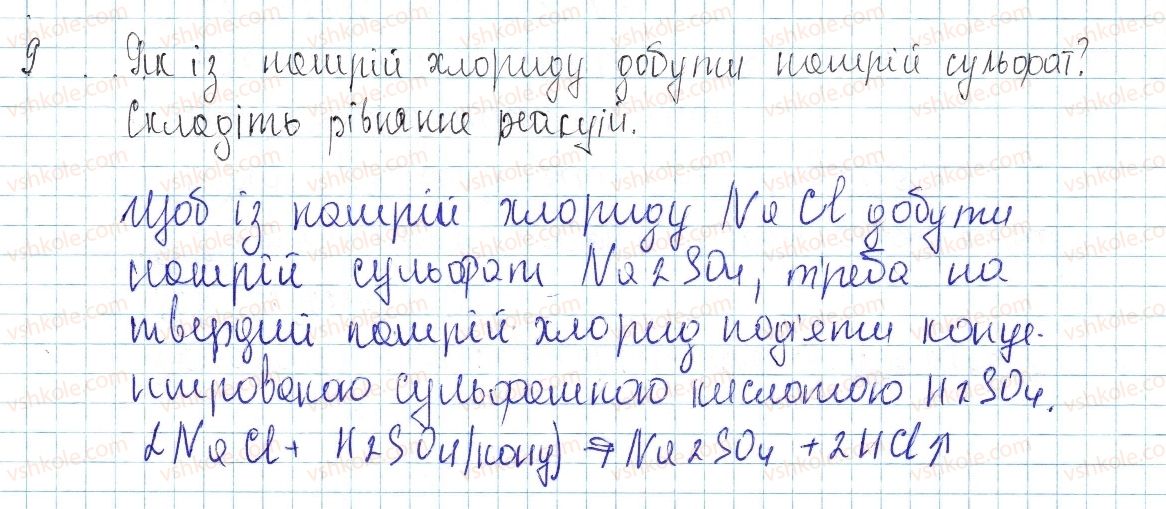 9 Як із натрій хлориду добути натрій сульфат?
Складіть рівняння реакцій.
Щоб із натрій хлориду NaCl добути
натрій сульфат Na2SO4, треба на
твердий натрій хлорид под'яти конце-
нтрованою сульфатною кислотою H2SO4.
2NaCl + H2SO4(конц) ⇒ Na2SO4 + 2HCl↑